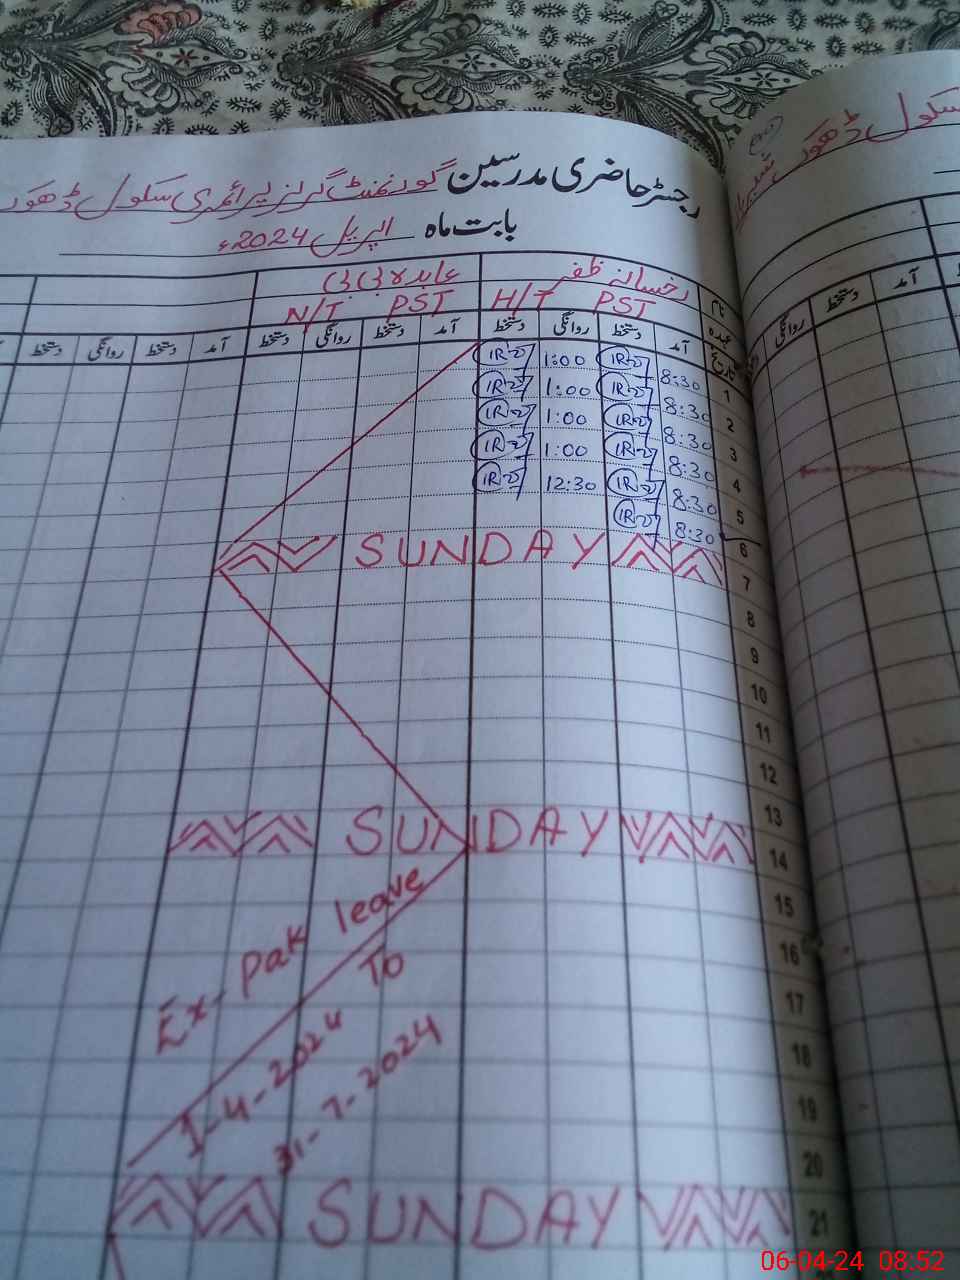 رجسٹر حاضری مدرسین گورنمنٹ گرلز پرائمری سکول ڈھوک
بابت ماہ اپریل 2024ء
نام رخسانہ ظفر عابدہ بی بی
عہدہ PST H/T PST N/T
تاریخ آمد دستخط روانگی دستخط آمد دستخط روانگی دستخط آمد دستخط روانگی دستخط
1 8:30 1:00
2 8:30 1:00
3 8:30 1:00
4 8:30 1:00
5 8:30 12:30
6 8:30
7 SUNDAY
8
9
10
11
12
13
14 SUNDAY
15
16
17
18
19
20
21 SUNDAY
Ex-Pak leave
1-4-2024 To
31-7-2024
سکول ڈھوک
آمد دستخط روانگی
06-04-24 08:52